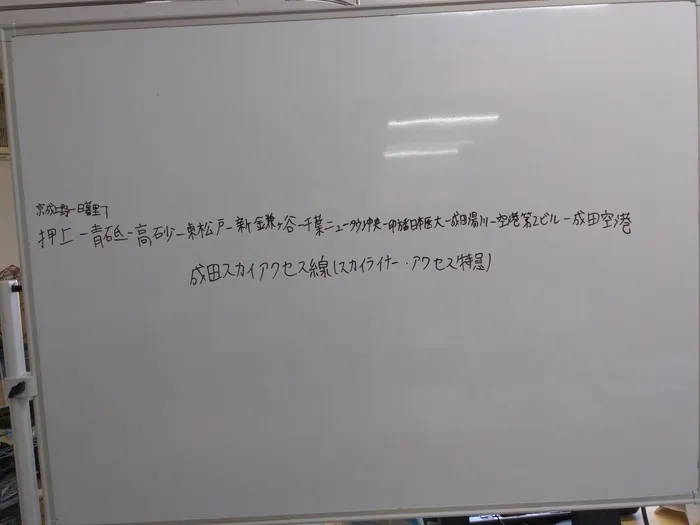 京成上野-日暮里┐
押上-青砥-高砂-東松戸-新鎌ヶ谷-千葉ニュータウン中央-印旛日本医大-成田湯川-空港第2ビル-成田空港
成田スカイアクセス線(スカイライナー・アクセス特急)